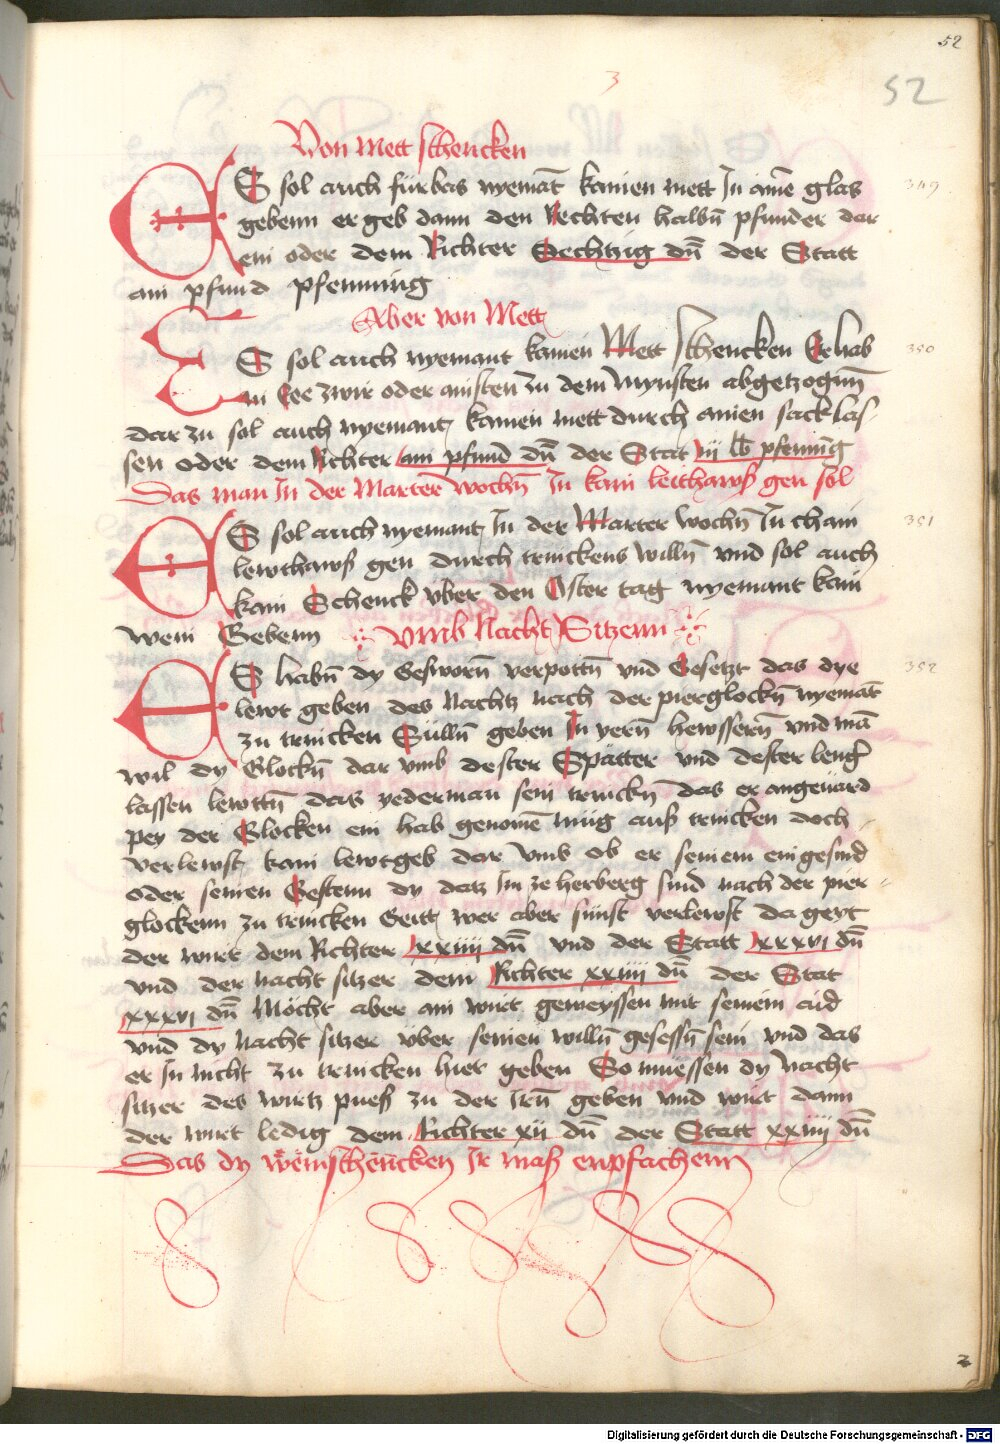 52
3
52
Von Mett schencken
ES sol auch fürbas nyemāt kainen mett In aime glas 349
gebenn er geb dann den Rechten halbn̄ pfunder dar
ein oder dem Richter Sechtzig dn̄ der Statt
ain pfund pfenning
Aber von Mett
ES sol auch nyemant kainen Mett schencken Er hab 350
in Ee zwir oder ainsten zu dem mynsten abgetzogn̄
dar zu sol auch nyemant kainen mett durch ainen sack las
sen oder dem Richter ain pfund dn̄ der Stat iij lb pfenning
Das man In der Marter wochn̄ In kain leithawß gen sol
ES sol auch nyemant In der Marter wochn̄ In chain 351
lewthawß gen durch trinckens willn̄ vnd sol auch
kain Schenck vber den Oster tag nyemant kain
wein Gebenn vmb Nacht Sitzenn
ES habn̄ dy Gesworn̄ verpottn̄ vnd Gesetzt das dye 352
lewt geben des Nachtz nach der pierglockn̄ nyemāt
zu trincken Sülln̄ geben In yern̄ hewssern̄ vnd mā
wil dy Glockn̄ dar vmb dester Spätter vnd dester lenḡ
lassen lewttn̄ datz yederman sein trinckn̄ das er angeuärd
pey der Glocken ein hab genomē müg auß trincken doch
verlewst kain lewtgeb dar vmb ob er seinem eingesind
oder seinen Gestenn dy datz Im ze herberg sind nach der pier
glockenn zu trincken Geitt wer aber sünst verlewst da geyt
der wirt dem Richter xxiiij dn̄ vnd der Statt xxxvi dn̄
vnd der nacht sitzer dem Richter xxiiij dn̄ der Stat
xxxvi dn̄ Möcht aber ain wirt geweyssen mit seinem aid
vnd dy Nacht sitzer über seinen willn̄ gesessn̄ sein vnd das
er In nicht zu trincken hiet geben So müessen dy Nacht
sitzer des wirtz pueß zu der Irn̄ geben vnd wirt dann
der wirt ledig dem Richter xij dn̄ der Statt xxiiij dn̄
Das dy weinschencken Ir maß enpfachenn
2
Digitalisierung gefördert durch die Deutsche Forschungsgemeinschaft - DFG